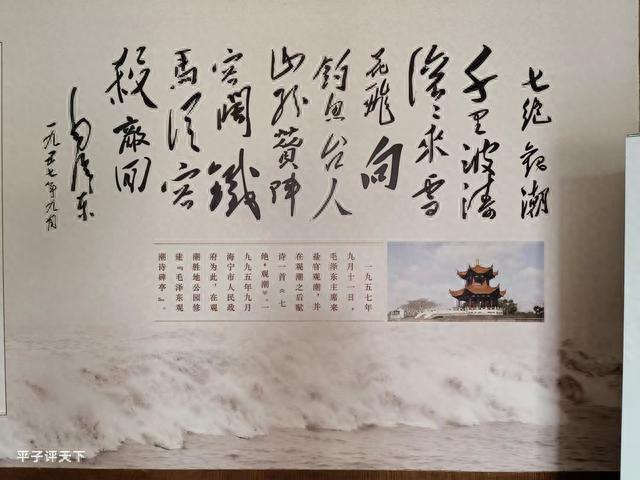 七绝 观潮
千里波涛
滚滚来雪
花飛向
釣鱼台人
山纷赞阵
容阔鐵
馬從容
殺敵回
毛泽东
一九五七年九月
一九五七年
九月十一日，
毛泽东主席来
盐官观潮，并
在观潮之后赋
诗一首《七
绝·观潮》。一
九九五年九月
海宁市人民政
府为此，在观
潮胜地公园修
建『毛泽东观
潮诗碑亭』。
平子评天下